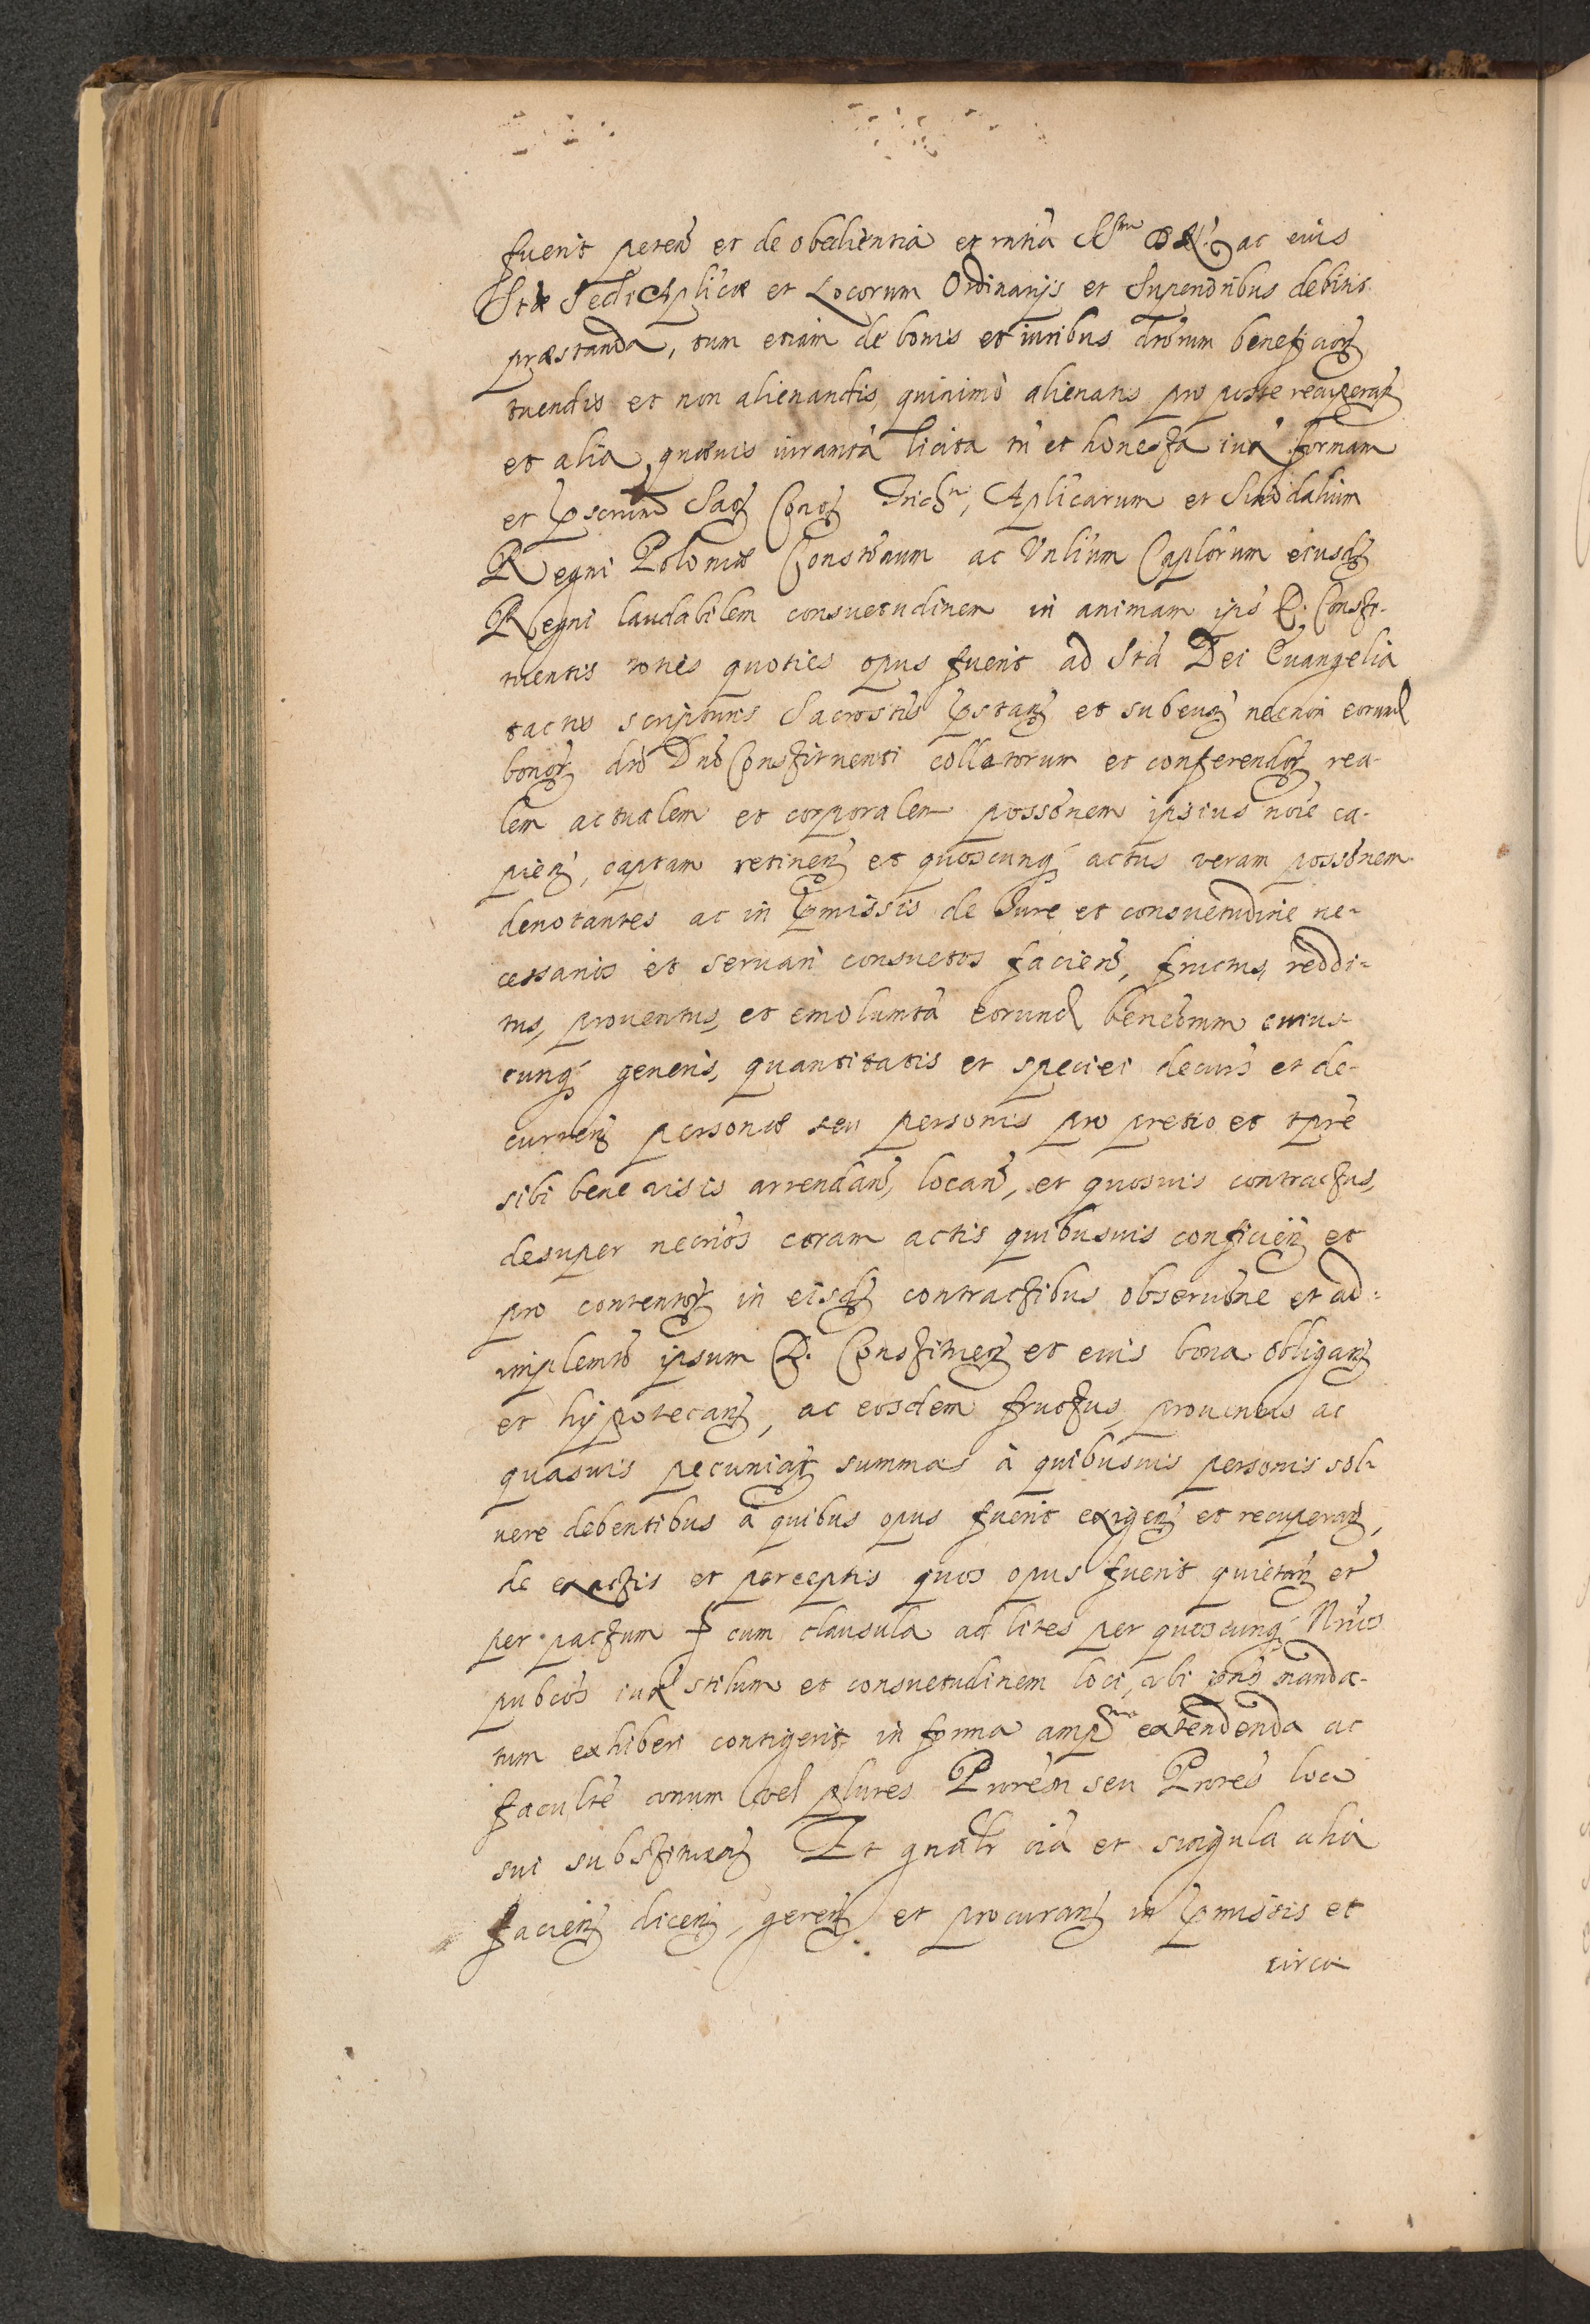 fuerit peten̄ et de obedientia et rntia S. D. N. ac eius
Stæ Sedi Aplicæ et Locorum Ordinarijs et Superioribus debitis
præstanda, tum etiam de bonis et iuribus dtorum beneficiorz
tuendis et non alienandis, quinimo alienatis pro posse recuperanz
et alia quævis iuranta licita tn et honesta iuxa formam
et pscrium Sacz Cononz Trid, Aplicarum et Sinodalium
Regni Poloniæ Constonum ac Vnlium Caplorum eiusdz
Regni laudabilem consuetudinem in animam ips D. Consti-
tuentis toties quoties opus fuerit ad Sta Dei Euangelia
tactis scripturis Sacrostis pstanz et subeunz necnon eorund
bonorz dto Dno Constituenti collatorum et conferendorz rea-
lem actualem et corporalem possonem ipsius noie ca-
pienz, captam retinenz et quoscunq actus veram possonem
denotantes ac in pmissis de Iure et consuetudine ne-
cessarios et seruari consuetos facien, fructus, reddi-
tus, prouentus, et emolumta eorund beneorum cuius-
cunq generis, quantitatis et speciei decurs et de-
currenz personæ seu personis pro pretio et tpre
sibi bene visis arrendan, locan, et quosuis contractus,
desuper necrios coram actis quibusuis conficienz et
pro contentorz in eisdz contractibus obseruone et ad-
implemto ipsum D. Constituenz et eius bona obliganz
et hypotecanz, ac eosdem fructus, prouentus ac
quasuis pecuniarz summas à quibusuis personis sol-
uere debentibus à quibus opus fuerit exigenz et recuperanz,
de exactis et perceptis quos opus fuerit quietanz et
per pactum cum clausula ad lites per quoscunq Nrios
pubcos iuxa stilum et consuetudinem loci, vbi pns manda-
tum exhiberi contigerit in forma ampma extendenda ac
faculte vnum vel plures Prorem seu Prores loco
sui substituenz Et gnalr oia et singula alia
facienz dicenz, gerenz et procuranz in pmissis et
circa